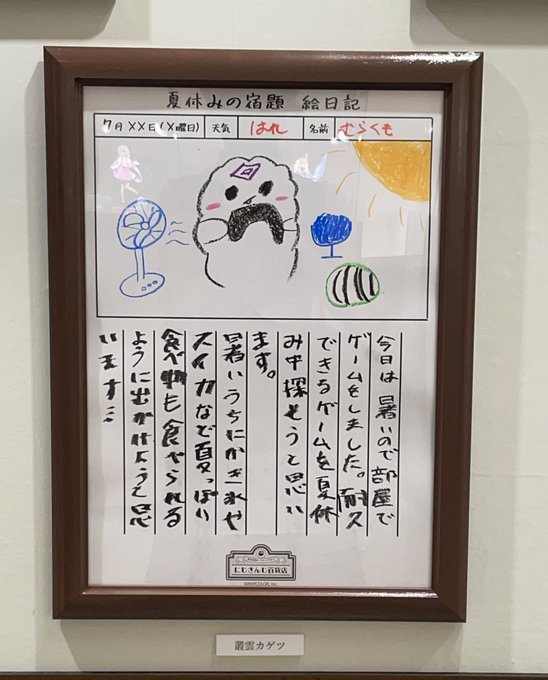 夏休みの宿題 絵日記
7月××日(×曜日) 天気 はれ 名前 むらくも
今日は暑いので部屋で
ゲームをしました。耐久
できるゲームを夏休
み中探そうと思い
ます。
暑いうちにかき氷や
スイカなど夏っぽい
食べ物も食べられる
ように出かけようと思
います…
にじさんじ百貨店
©ANYCOLOR, Inc.
叢雲カゲツ